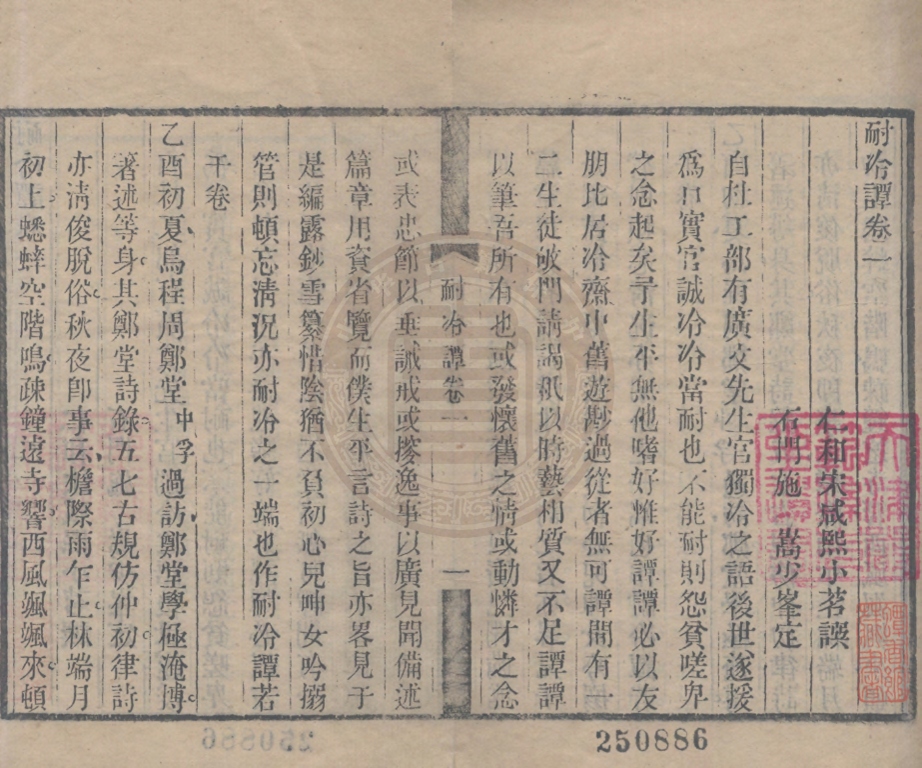 耐冷譚卷一
仁和宋咸熙小茗譔
石門施嵩少峯定
自杜工部有廣文先生官獨冷之語後世遂援
爲口實官誠冷冷當耐也不能耐則怨貧嗟卑
之念起矣予生平無他嗜好惟好譚譚必以友
朋比居冷齋中舊遊尠過從者無可譚間有一
二生徒敂門請謁祇以時藝相質又不足譚譚
以筆吾所有也或發懷舊之情或動憐才之念
或表忠節以垂誡戒或摉逸事以廣見聞備述
篇章用資省覽而僕生平言詩之旨亦畧見于
是編露鈔雪纂惜陰猶不負初心兒呻女吟搦
管則頓忘淸況亦耐冷之一端也作耐冷譚若
干卷
乙酉初夏烏程周鄭堂中孚過訪鄭堂學極淹博
著述等身其鄭堂詩錄五七古規仿仲初律詩
亦淸俊脫俗秋夜卽事云檐際雨乍止林端月
初上蟋蟀空階鳴疎鐘遠寺響西風颯颯來頓
耐冷譚卷一
一
250886